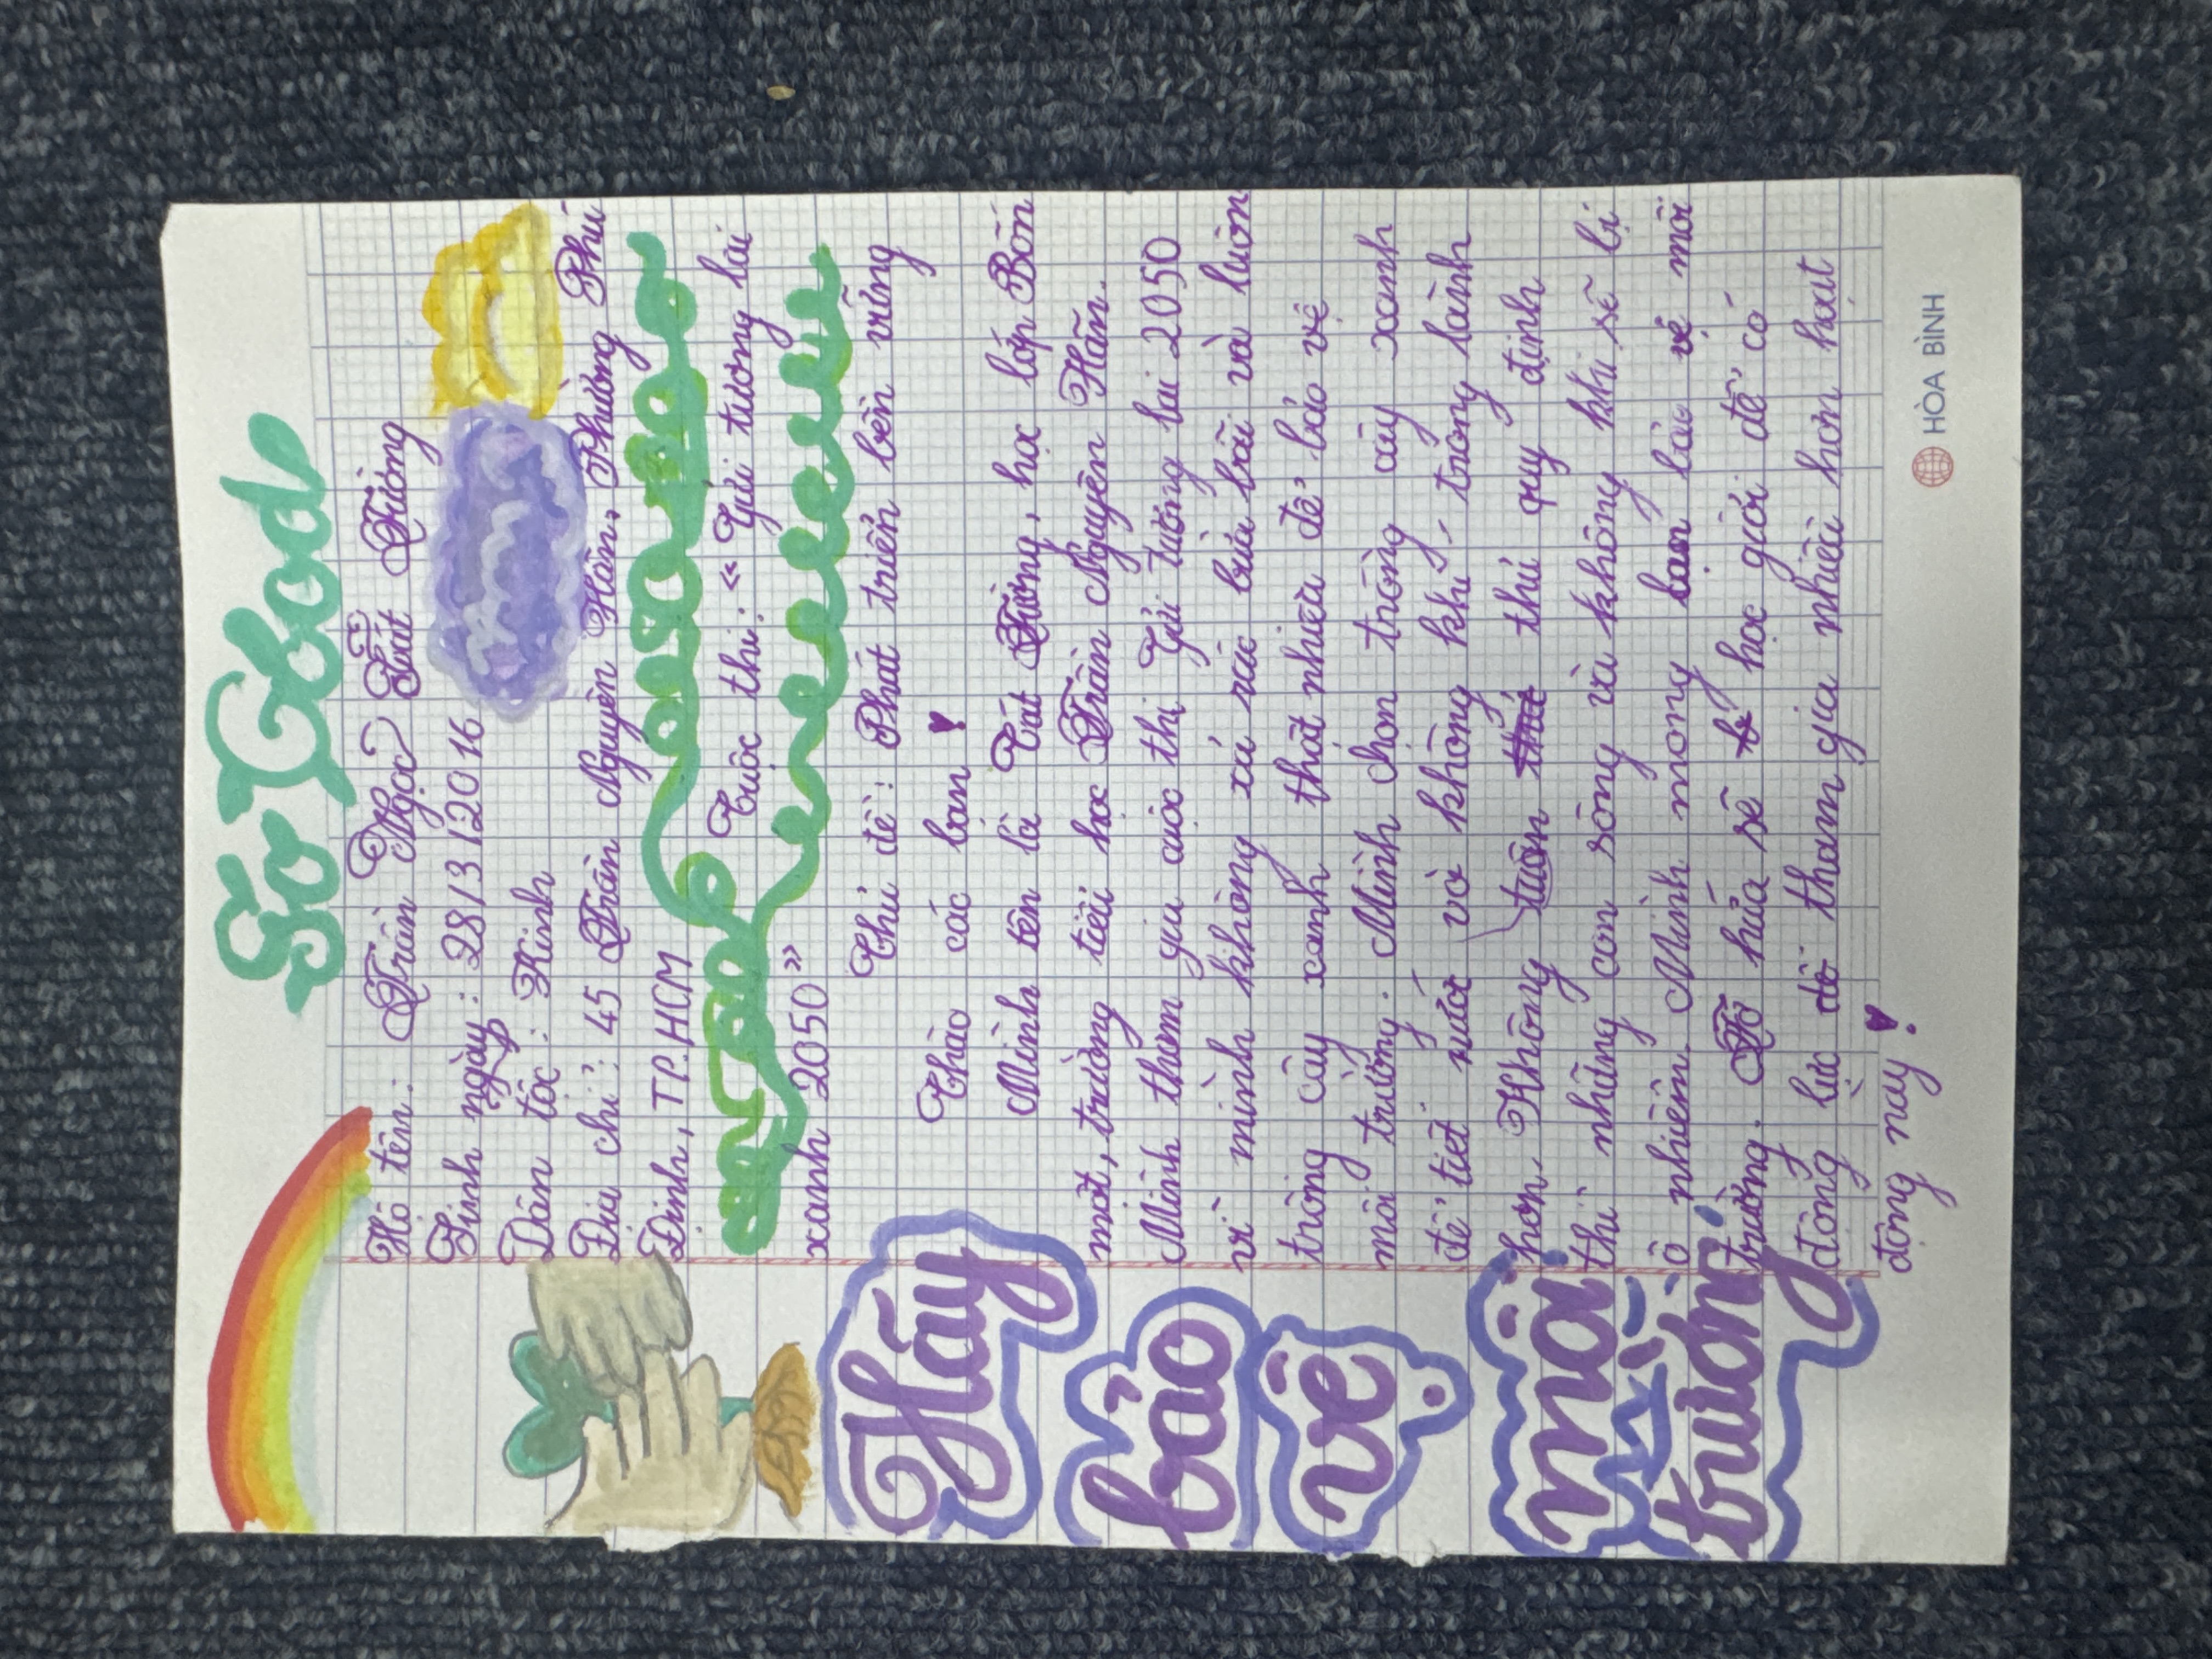 So Good
Họ tên: Trần Ngọc Cát Tường
Sinh ngày: 28/3/2016
Dân tộc: Kinh
Địa chỉ: 45 Trần Nguyên Hãn, Phường Phú
Định, TP.HCM
Cuộc thi: "Gửi tương lai
xanh 2050"
Chủ đề: Phát triển bền vững
Chào các bạn!
Mình tên là Cát Tường, học lớp Bốn
một, trường tiểu học Trần Nguyên Hãn.
Mình tham gia cuộc thi Gửi tương lai 2050
vì mình không xả rác bừa bãi và luôn
trồng cây xanh thật nhiều để bảo vệ
môi trường. Mình chọn trồng cây xanh
để tiết nước và không khí, trong lành
hơn. Không tuân thủ quy định
thì những con sông và không khí sẽ bị
ô nhiễm. Mình mong bạn bảo vệ môi
trường. Tớ hứa sẽ học giỏi để có
động lực để tham gia nhiều hơn hoạt
động này!
Hãy
bảo
vệ
môi
trường
HÒA BÌNH